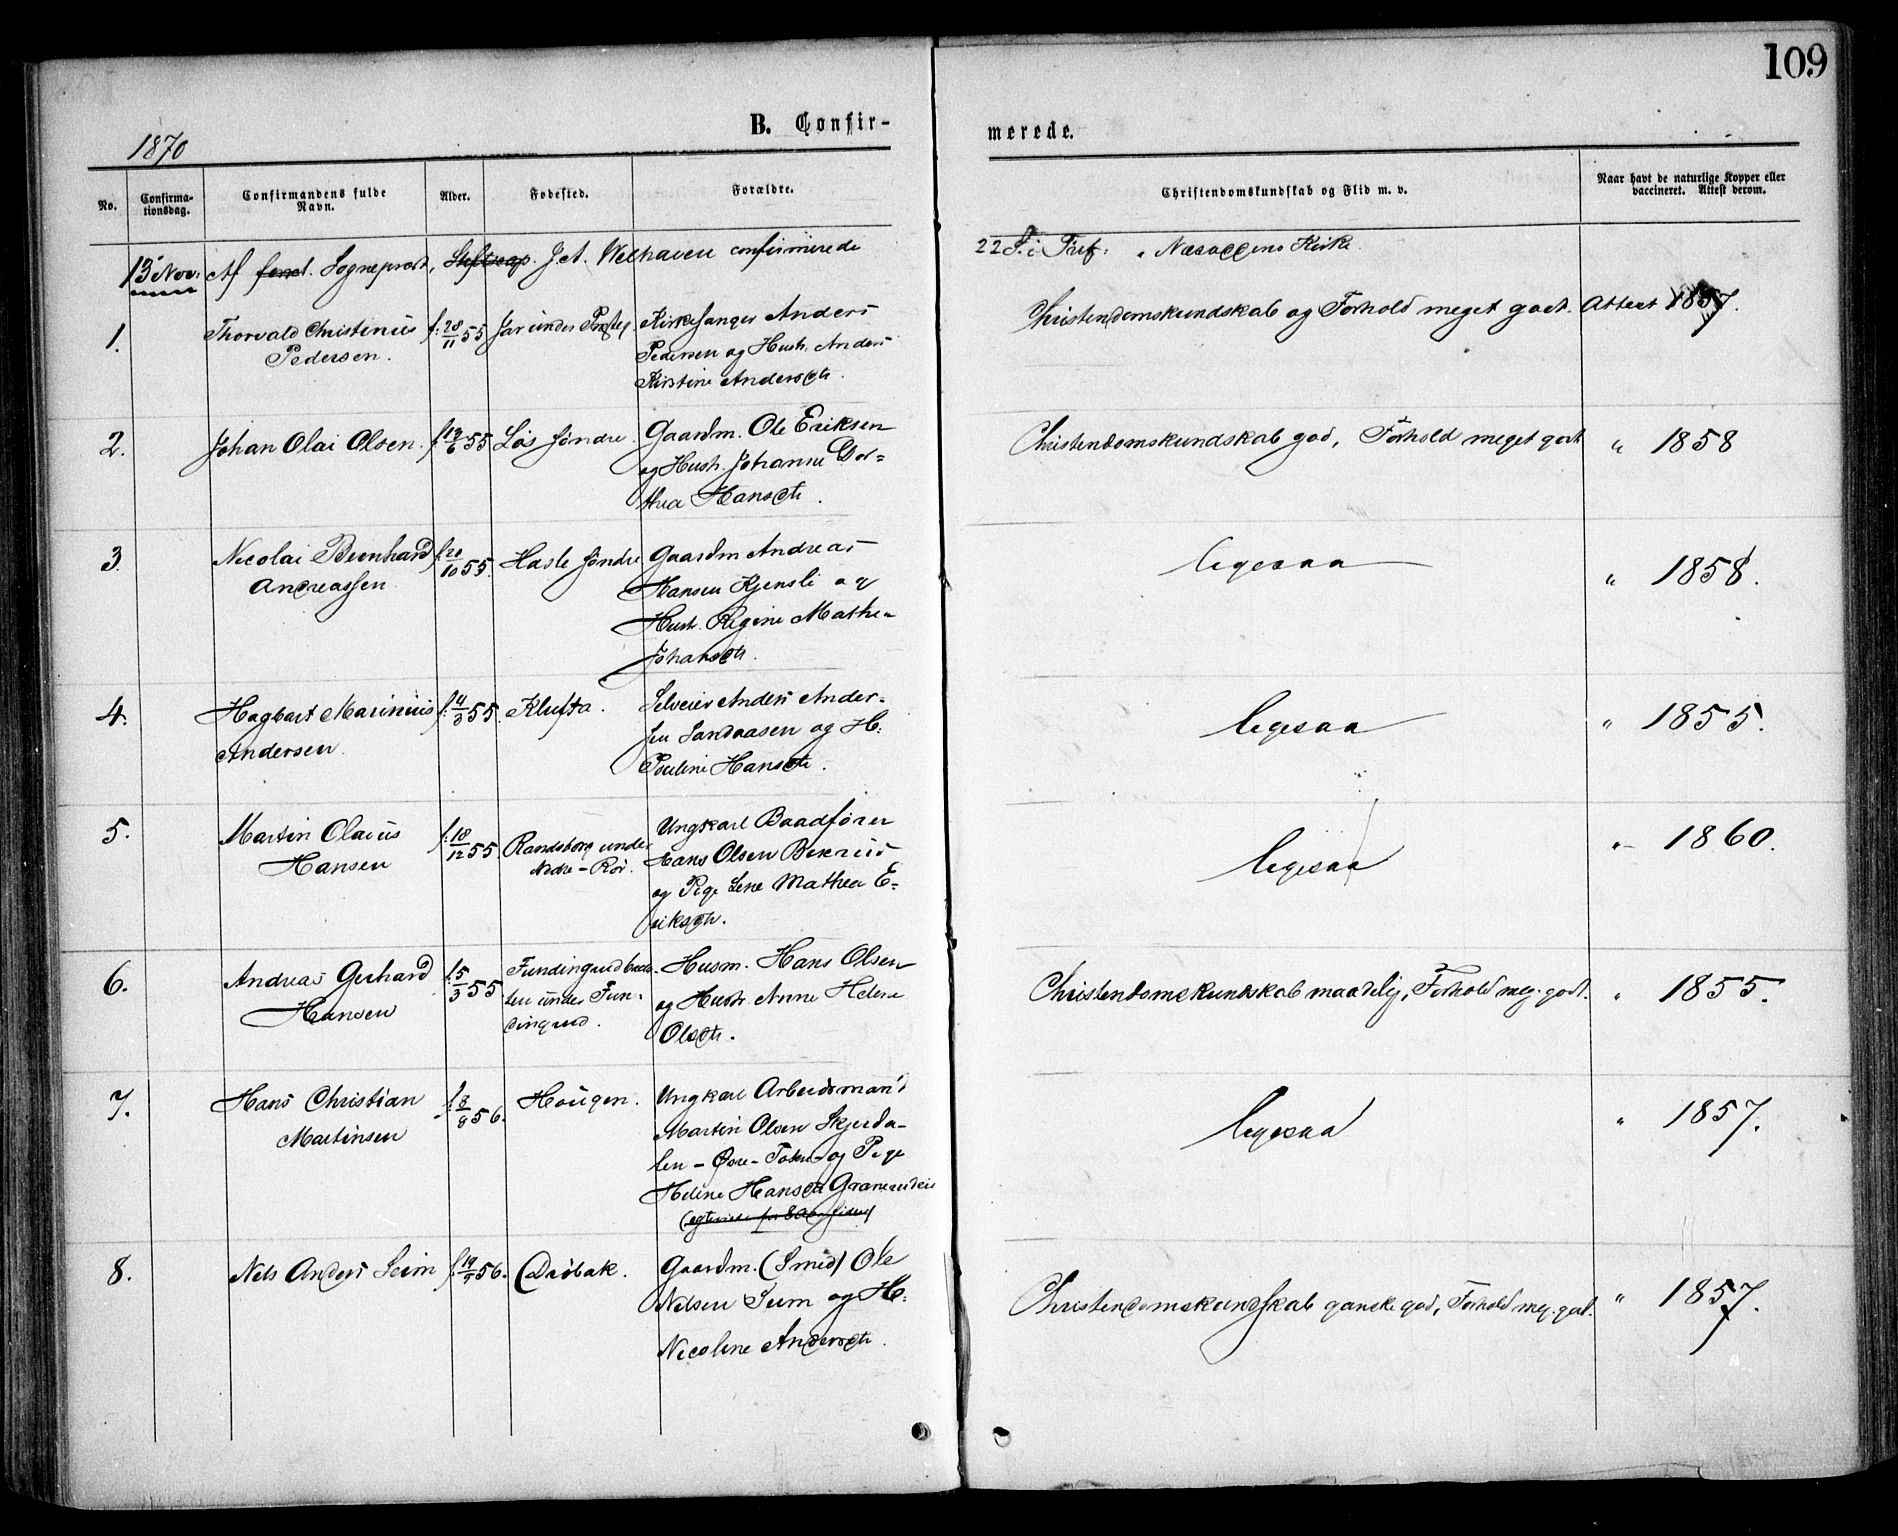 109
B. Confir-
merede.
1870
No.
Confirma-
tionsdag.
Confirmandens fulde
Navn.
Alder.
Fødested.
Forældre.
Christendomskundskab og Flid m. v.
Naar havt de naturlige Kopper eller
vaccineret. Attest derom.
13 Nov: Af Sognepræst, J. A. Welhaven confirmerede
22 S. i Tref: i Næsoddens Kirke.
1.
Thorvald Christinus
Pedersen.
f. 28/11 55
Jar under
Kirkesanger Anders
Pedersen og Hustr. Anders
Kirstine Andersdtr.
Christendomskundskab og Forhold meget godt.
Attest 1857.
2.
Johan Olai Olsen.
f. 19/6 55
Løs søndre.
Gaardm. Ole Eriksen
og Hustr. Johanne Dor=
thea Hansdtr.
Christendomskundskab god, Forhold meget godt
" 1858
3.
Nicolai Bernhard
Andreassen
f. 20/10 55.
Hasle søndre
Gaardm Andreas
Hansen Kjensli og
Hustr. Regine Mathea
Johansdtr.
ligesaa
" 1858.
4.
Hagbart Marinius
Andersen.
f. 11/3 55.
Klufta.
Selveier Anders Ander-
sen Sandaasen og H:
Pouline Hansdtr.
ligesaa
" 1855.
5.
Martin Olavus
Hansen
f. 18/12 55.
Randsborg under
Nedre-Rør.
Ungkarl Baadfører
Hans Olsen
og Pige Lene Mathea E-
riksdtr.
ligesaa
" 1860.
6.
Andreas Gerhard
Hansen
f. 5/3 55
under Fun-
dingrud.
Husm. Hans Olsen
og Hustr. Anne Helene
Olsdtr.
Christendomskundskab maadelig, Forhold meg. godt.
" 1855.
7.
Hans Christian
Martinsen
f. 8/8 56.
Hougen.
Ungkarl Arbeidsmand
Martin Olsen Skjerda-
len - Øvre - og Pige
Helene Hansdtr
ligesaa
" 1857.
8.
Nels Anders Seim
f. 19/5 56.
Drøbak.
Gaardm. (Smed) Ole
Nelsen Seim og H:
Nicoline Andersdtr.
Christendomskundskab ganske god, Forhold meg. godt.
" 1857.